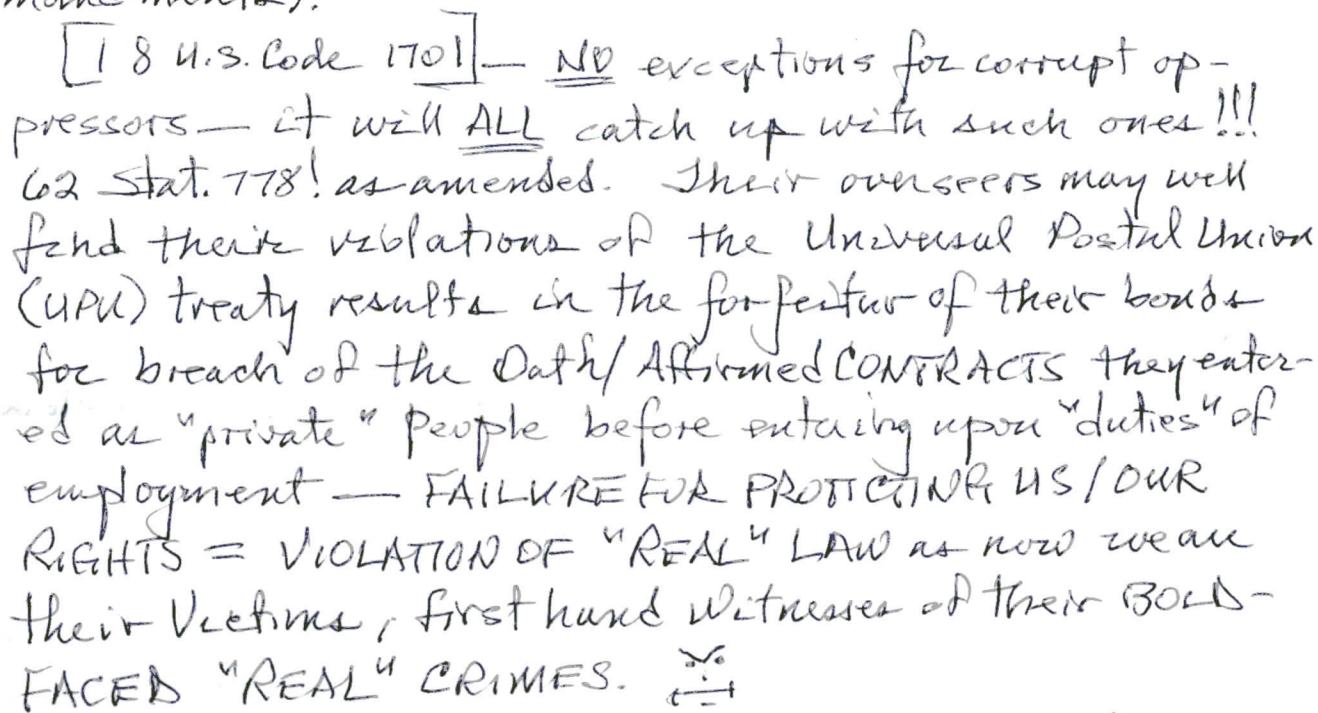 [18 U.S. Code 1701] — NO exceptions for corrupt op-
pressors — it will ALL catch up with such ones!!!
62 Stat. 778! as amended. Their overseers may well
find their violations of the Universal Postal Union
(UPU) treaty results in the forfeitur of their bonds
for breach of the Oath/Affirmed CONTRACTS they enter-
ed as "private" People before entering upon "duties" of
employment — FAILURE FOR PROTECTING US/OUR
RIGHTS = VIOLATION OF "REAL" LAW as now we are
their Victims, first hand Witnesses of their BOLD-
FACED "REAL" CRIMES.